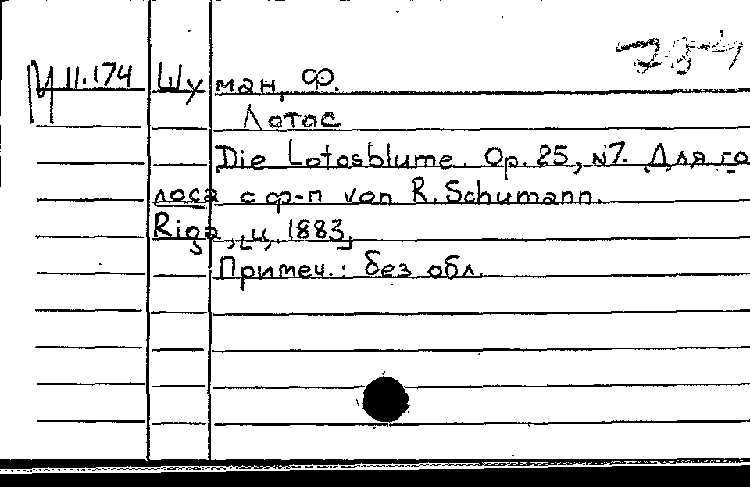 М 11.174 Шуман, Ф.
Лотос
Die Lotosblume. Op. 25, №7. Для го
лоса с ф-п von R. Schumann.
Riga, [ц. 1883]
Примеч.: без обл.